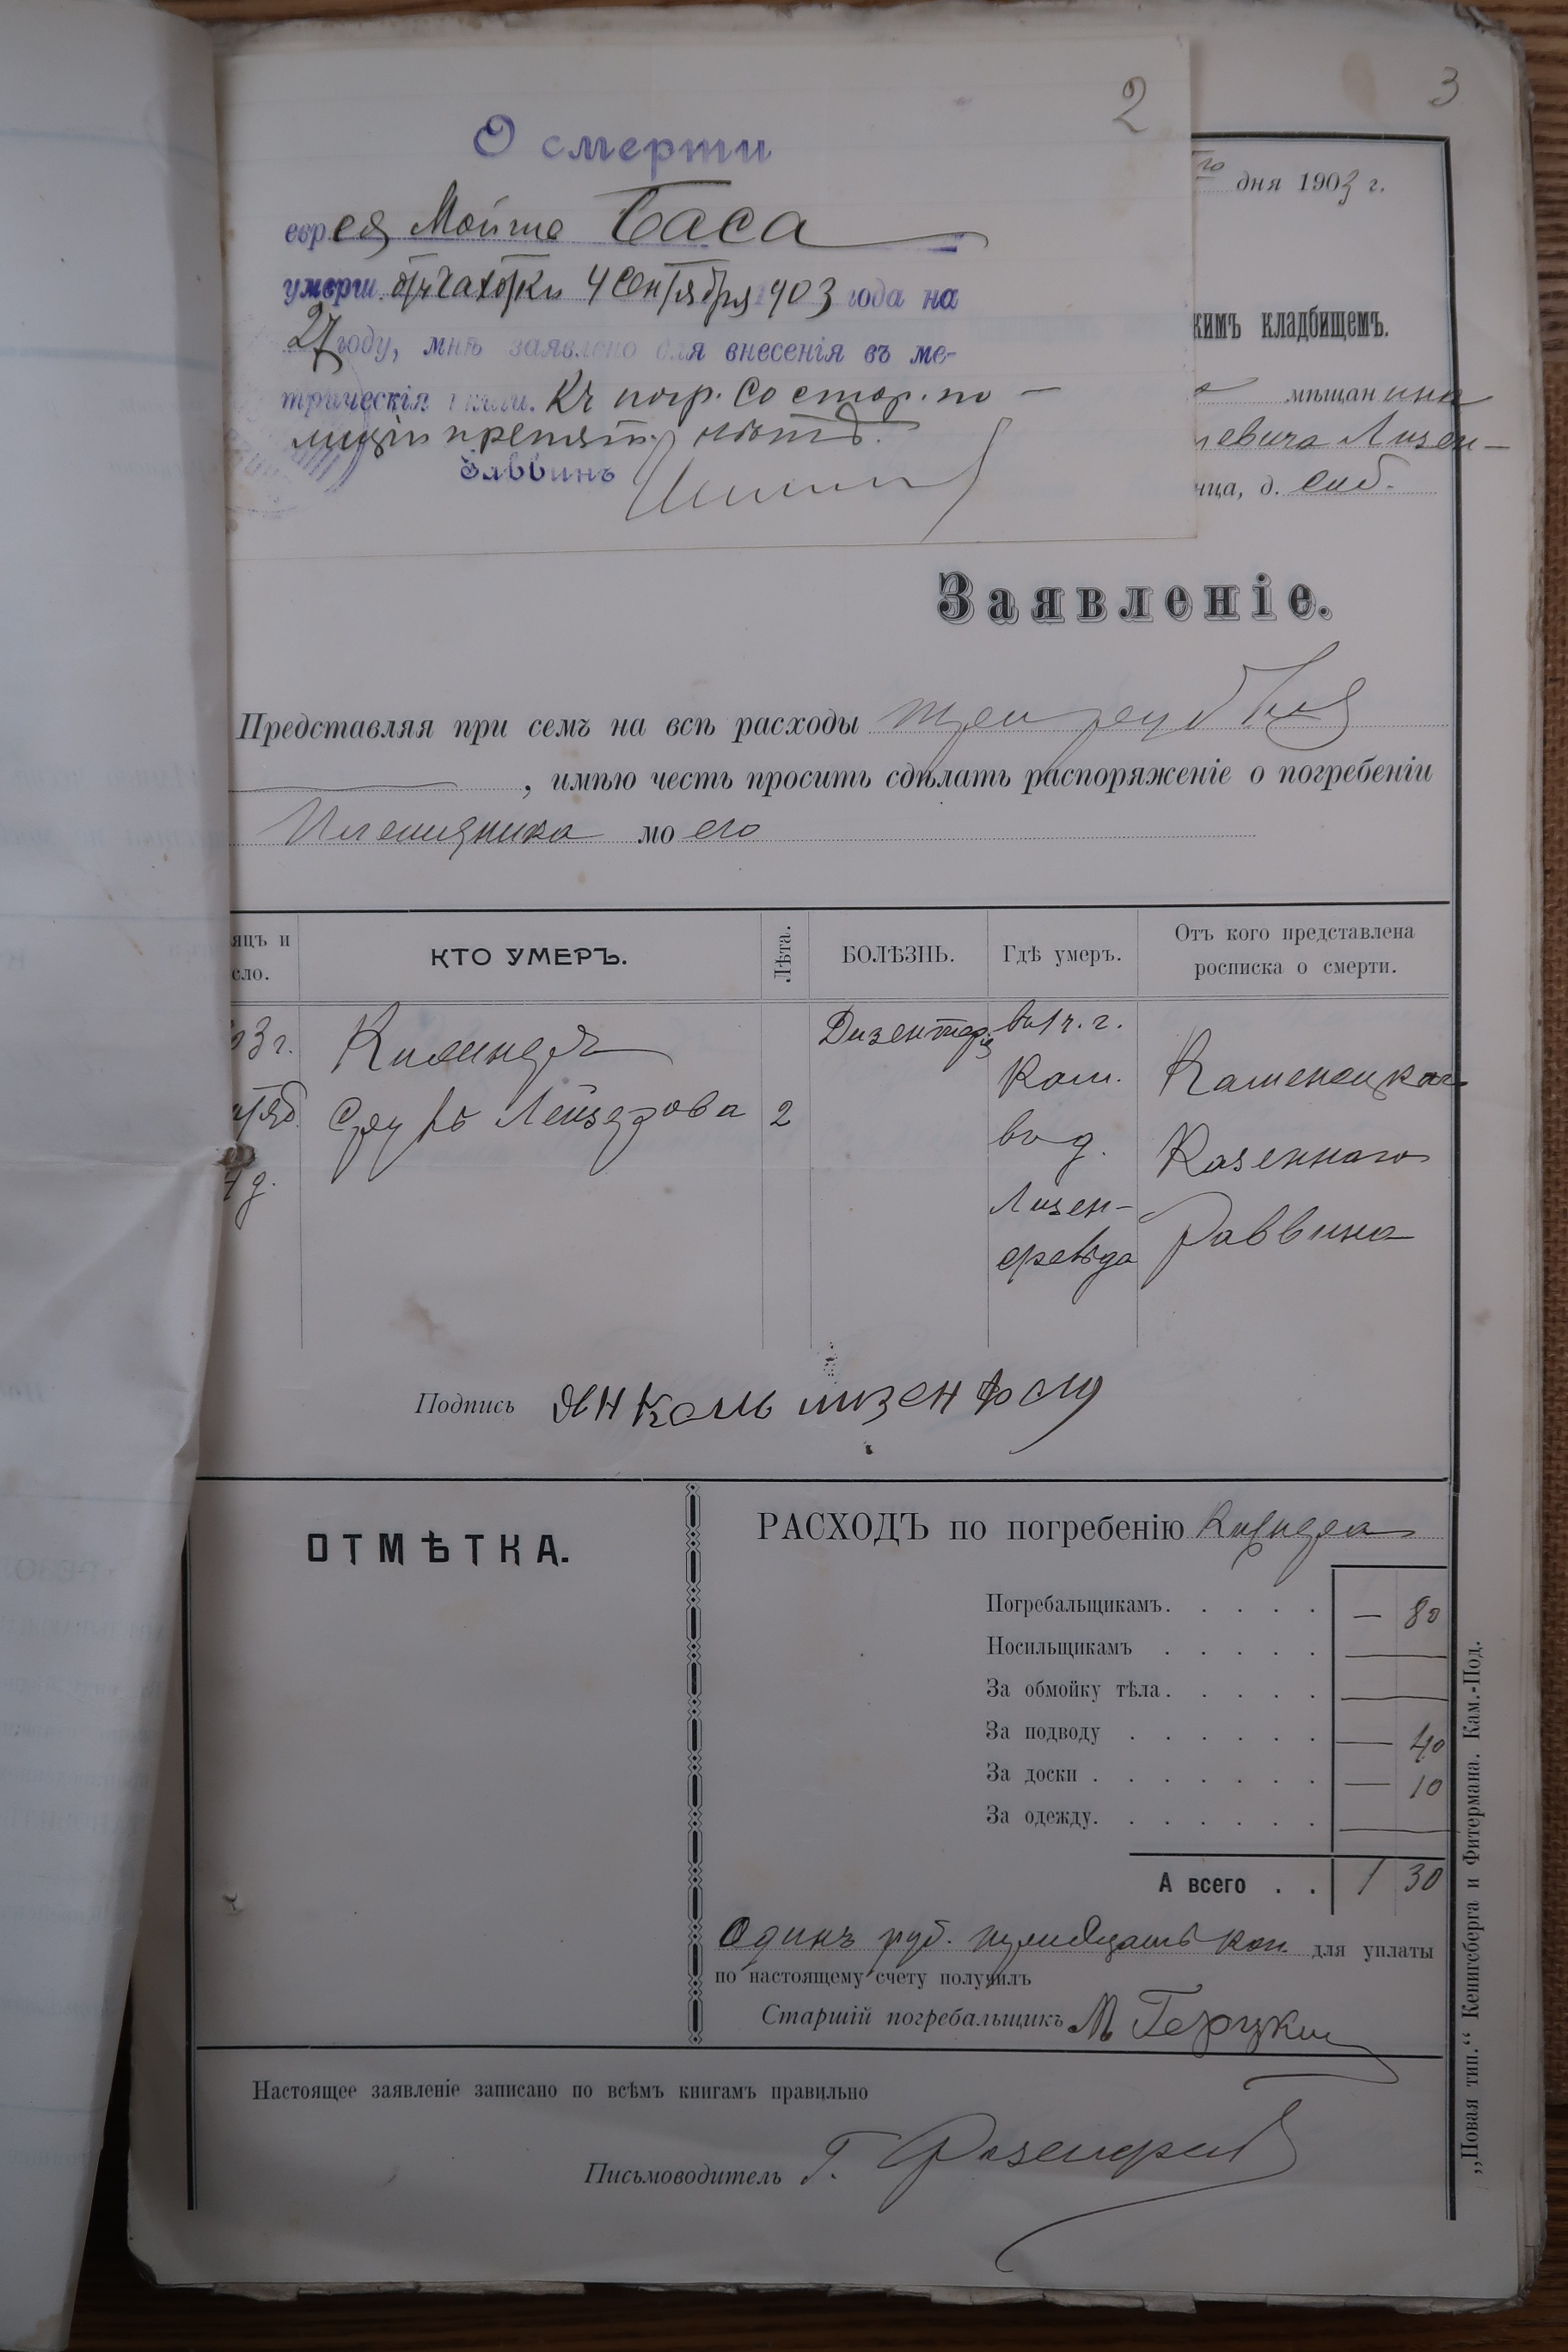 2
3
О смерти
еврея Мойше Баса
умерш. отъ чахотки 4 Сентября 1903 года на
27 году, мнѣ заявлено для внесенія въ ме-
трическія книги. Къ погр. со стор. по-
лиціи препят. нѣтъ.
Раввинъ
го дня 1903 г.
кимъ кладбищемъ.
мѣщанина
евича Лизен-
нца, д. соб.
Заявленіе.
Представляя при семъ на все расходы три руб
, имѣю честь просить сдѣлать распоряженіе о погребеніи
Племянника моего
яцъ и
сло.
КТО УМЕРЪ.
Лѣта.
БОЛѢЗНЬ.
Гдѣ умеръ.
Отъ кого представлена
росписка о смерти.
03 г.
тяб.
4 д.
Срулъ Лейзерова
2
Дизентерія
въ 1 ч. г.
Кам.
въ д.
Лизен-
Каменецкаго
Казеннаго
Раввина
Подпись Янкель лизенфелд
ОТМѢТКА.
РАСХОДЪ по погребенію
Погребальщикамъ. — 80
Носильщикамъ —
За обмойку тѣла. —
За подводу — 40
За доски — 10
За одежду. —
А всего 1 30
Одинъ руб. тридцать коп. для уплаты
по настоящему счету получилъ
Старшій погребальщикъ М
Настоящее заявленіе записано по всѣмъ книгамъ правильно
Письмоводитель Г.
„Новая тип.“ Кенигсберга и Фитермана. Кам.-Под.